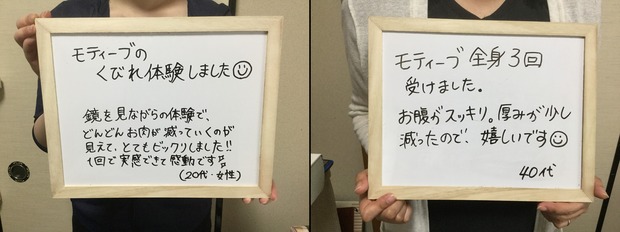 モティーブの
くびれ体験しました☺
鏡を見ながらの体験で、
どんどんお肉が減っていくのが
見えて、とてもビックリしました!!
1回で実感できて感動です
(20代・女性)
モティーブ全身3回
受けました。
お腹がスッキリ。厚みが少し
減ったので、嬉しいです☺
40代